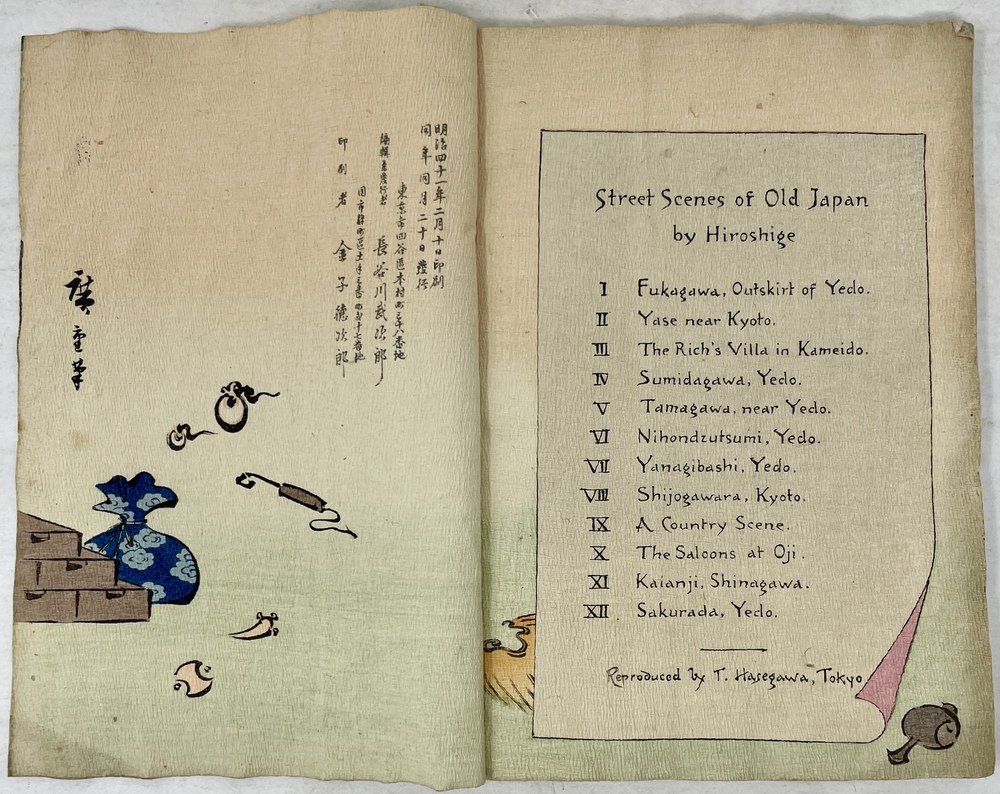 明治四十一年二月十日印刷
同年同月二十日發行
東京市四谷區本村町三十八番地
編輯兼發行者 長谷川武次郎
同市麹町區土手三番町 十七番地
印刷者 金子德次郎
廣重筆
Street Scenes of Old Japan
by Hiroshige
I Fukagawa, Outskirt of Yedo.
II Yase near Kyoto.
III The Rich's Villa in Kameido.
IV Sumidagawa, Yedo.
V Tamagawa, near Yedo.
VI Nihondzutsumi, Yedo.
VII Yanagibashi, Yedo.
VIII Shijogawara, Kyoto.
IX A Country Scene.
X The Saloons at Oji.
XI Kaianji, Shinagawa.
XII. Sakurada, Yedo.
Reproduced by T. Hasegawa, Tokyo